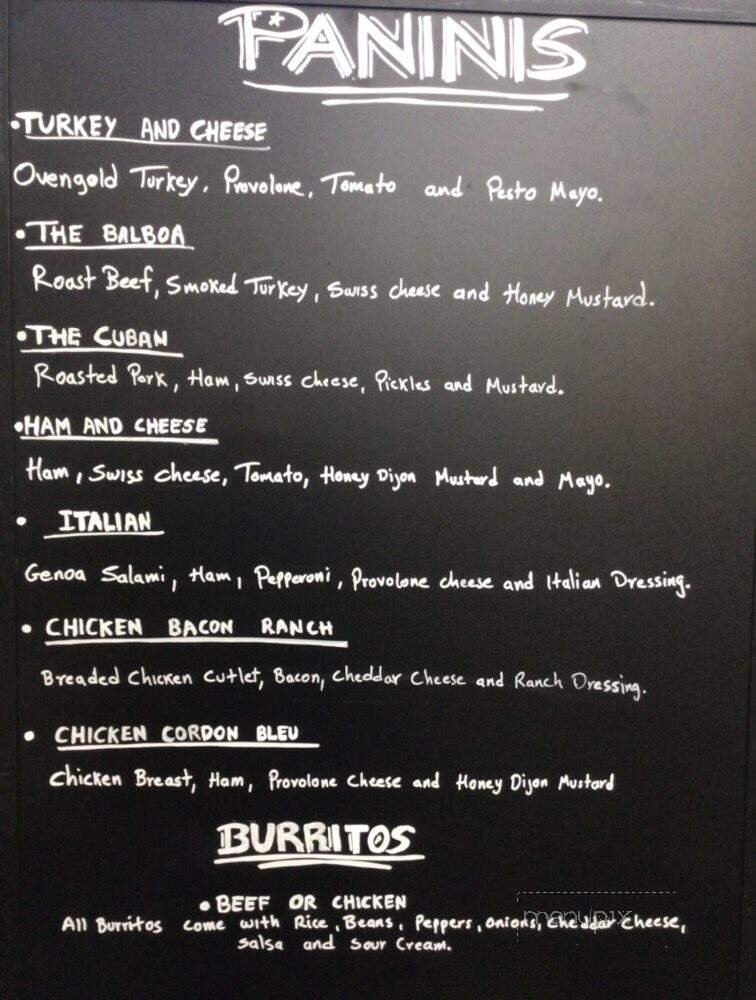 PANINIS
•TURKEY AND CHEESE
Ovengold Turkey, Provolone, Tomato and Pesto Mayo.
•THE BALBOA
Roast Beef, Smoked Turkey, Swiss cheese and Honey Mustard.
•THE CUBAN
Roasted Pork, Ham, Swiss Cheese, Pickles and Mustard.
•HAM AND CHEESE
Ham, Swiss cheese, Tomato, Honey Dijon Mustard and Mayo.
• ITALIAN
Genoa Salami, Ham, Pepperoni, Provolone cheese and Italian Dressing.
• CHICKEN BACON RANCH
Breaded Chicken Cutlet, Bacon, Cheddar Cheese and Ranch Dressing.
• CHICKEN CORDON BLEU
Chicken Breast, Ham, Provolone Cheese and Honey Dijon Mustard
BURRITOS
• BEEF OR CHICKEN
All Burritos come with Rice, Beans, Peppers, Onions, Cheddar Cheese,
Salsa and Sour Cream.
menupix